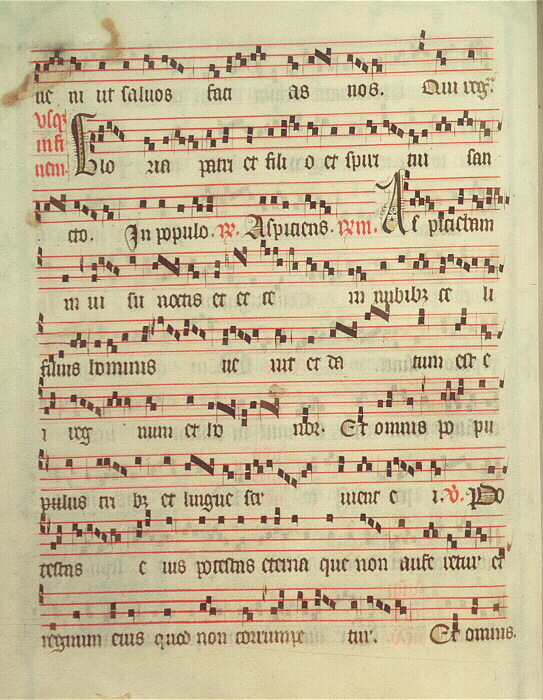 ne ni ut saluos faci as nos. Qui reg.
usq; in fi nem. Glo ria patri et fili o et spiri tui san
cto. In populo. R. Aspiciens. R. Aspiciebam
in ui su noctis et ec ce in nubibz ce li
filius hominis ue nit et da tum est e
i reg num et ho nor Et omnis po pu
pulus tri bz et lingue ser uient e i. V. Po
testas e ius potestas eterna que non aufe retur et
regnum eius quod non corrumpe tur. Et omnis.